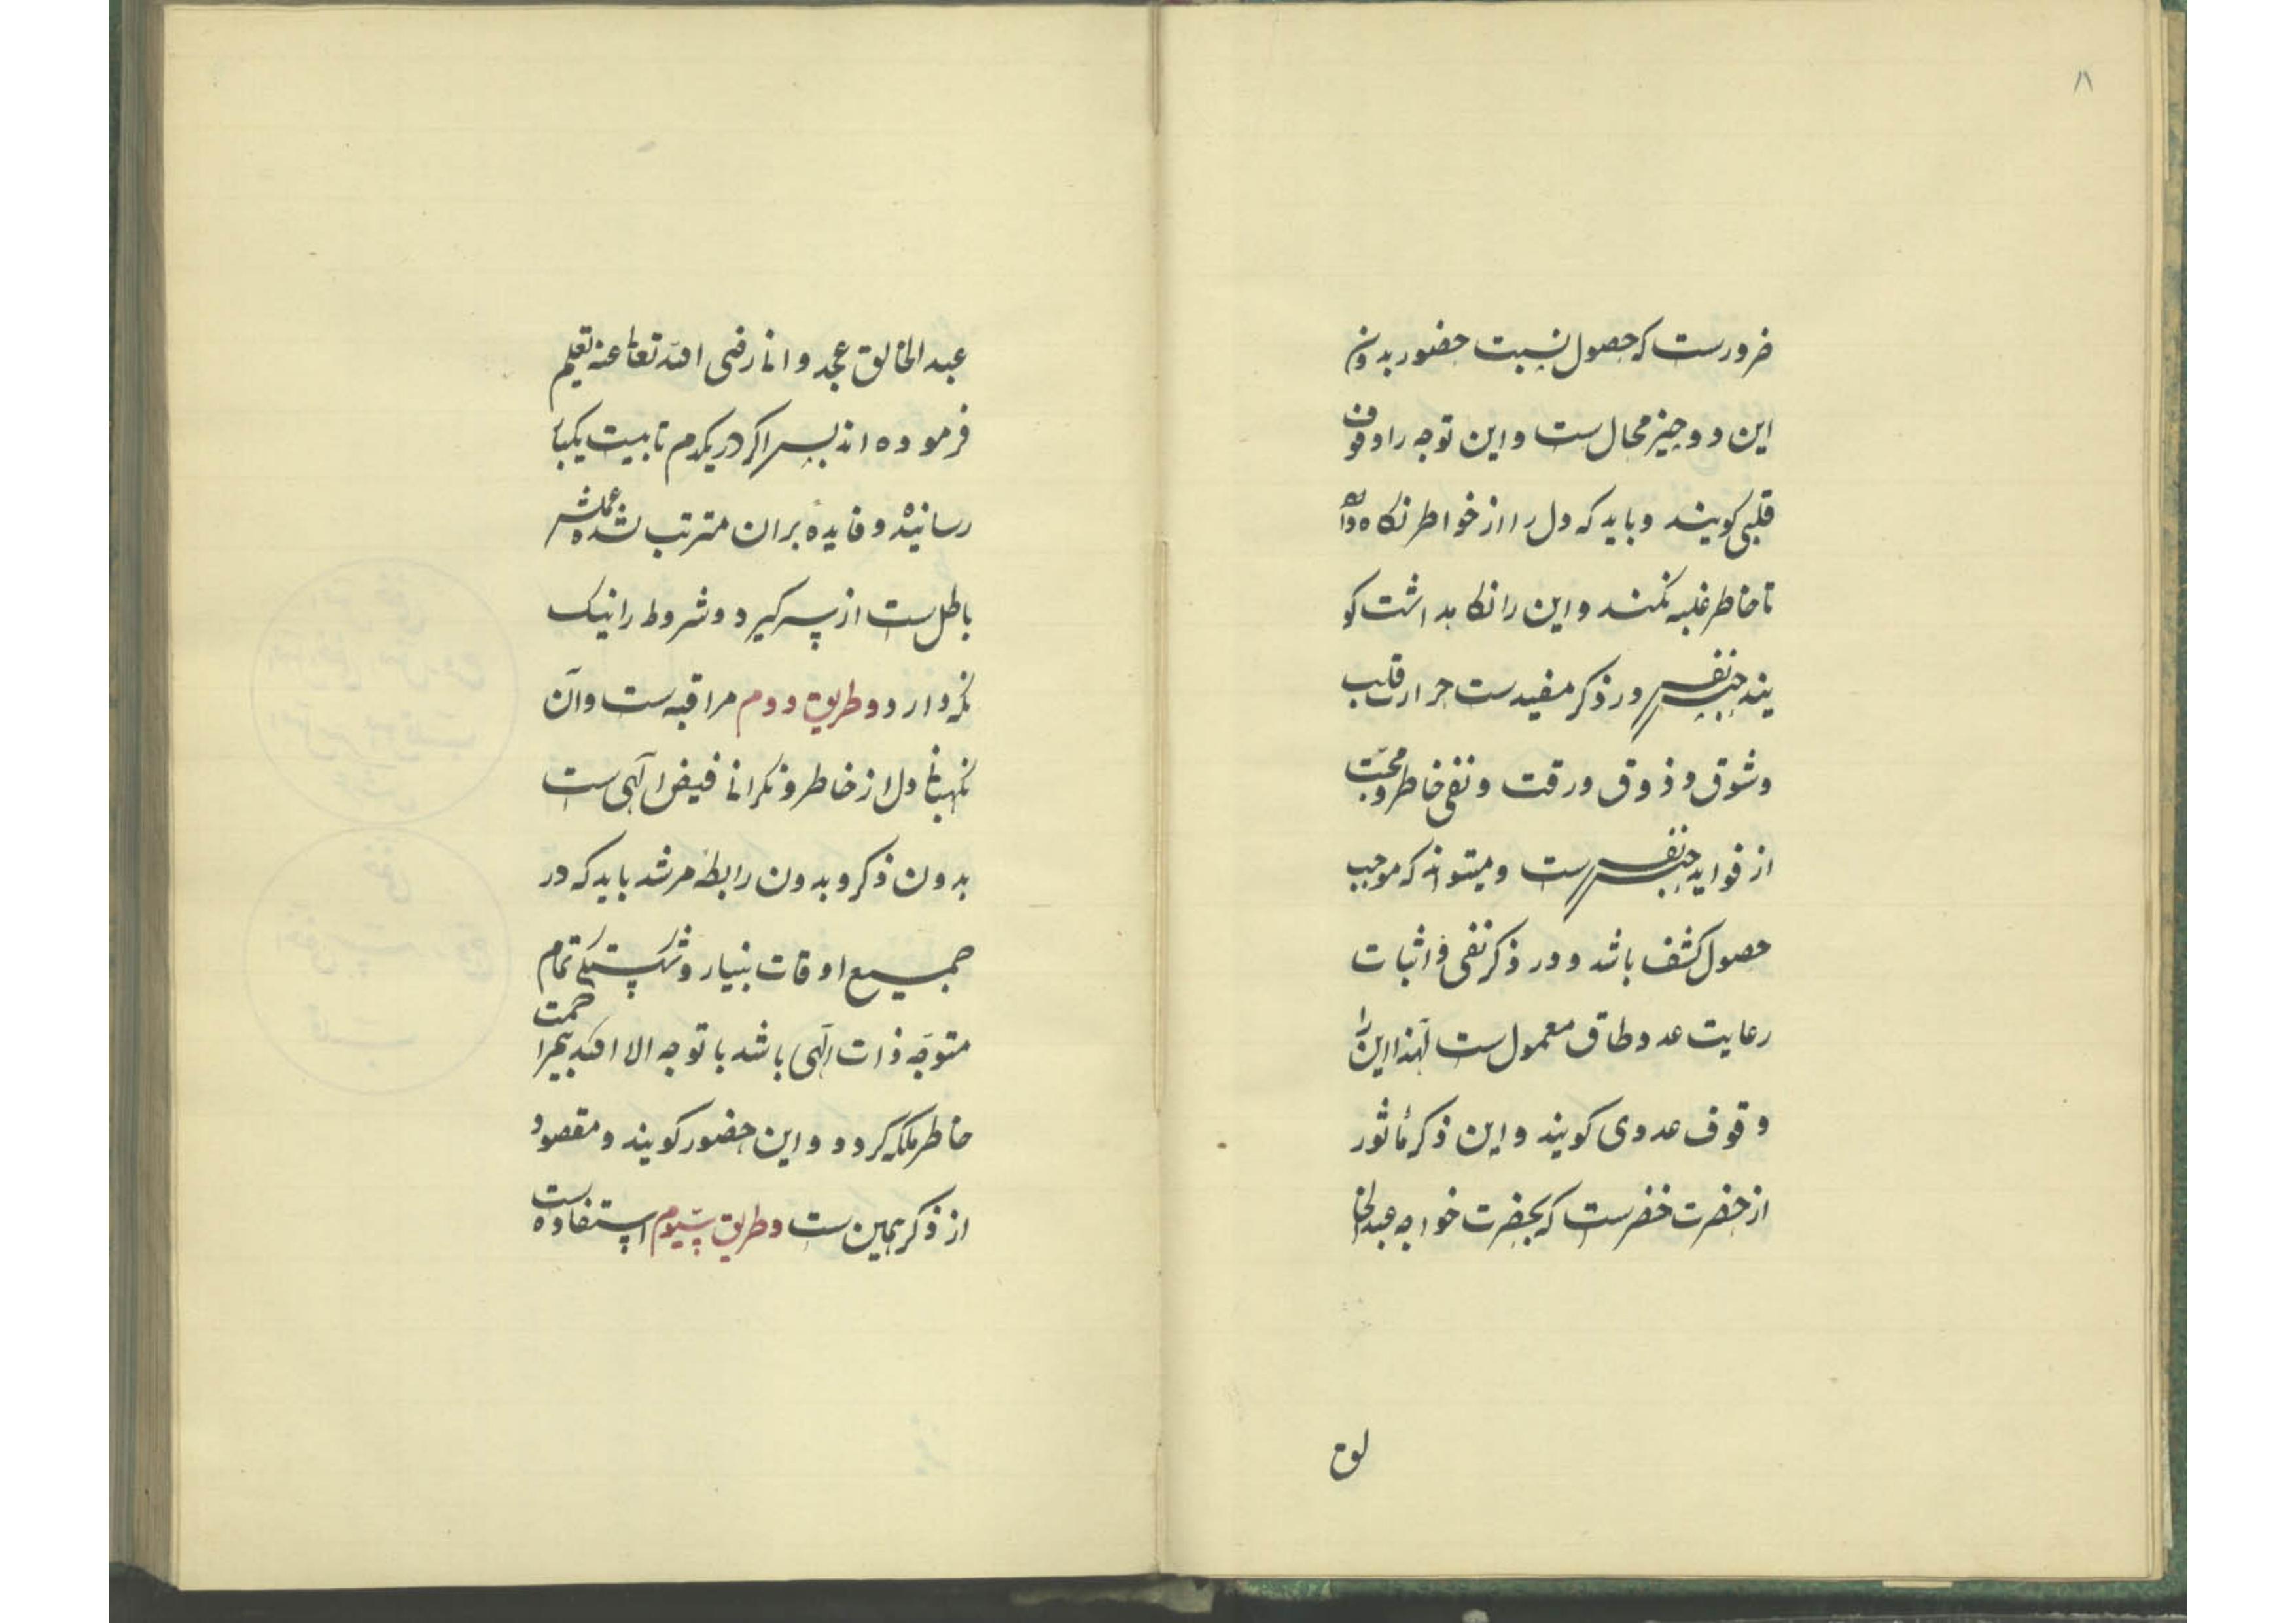 ۱۱
ضرورست که حصول نسبت حضور بدون
این دو چیز محال ست و این توجه را وقوف
قلبی کویند و باید که دل را از خواطر نکاه دارد
تا خاطر غلبه نکند و این را نکاهداشت کو
یند حبس نفس در ذکر مفیدست حرارت قلب
و شوق و ذوق و رقت و نفی خاطر و محبّت
از فواید حبس نفس ست و میتواند که موجب
حصول کشف باشد و در ذکر نفی و اثبات
رعایت عدد طاق معمول ست لهذا این را
وقوف عددی کویند و این ذکر مأثور
از حضرت خضرست که بحضرت خواجه عبدالخا
لق
عبدالخالق عجدوانا رضی الله تعالی عنه تعلیم
فرموده اند پس اکر در یکدم تا بیست یکبار
رسانیده و فایدهٔ بران مترتب نشده عملش
باطل ست از سر کیرد و شروط را نیک
نکه دارد و طریق دوم مراقبه ست و آن
نکهبانی دل از خاطر و نکرانی فیض الهی ست
بدون ذکر و بدون رابطهٔ مرشد باید که در
جمیع اوقات بنیاز و شکستکی تمام
متوجّه ذات الهی باشد با توجه الا الله بیمزاحمت
خاطر ملکه کردد و این حضور کویند و مقصود
از ذکر همین ست و طریق سیوم استفاده ست